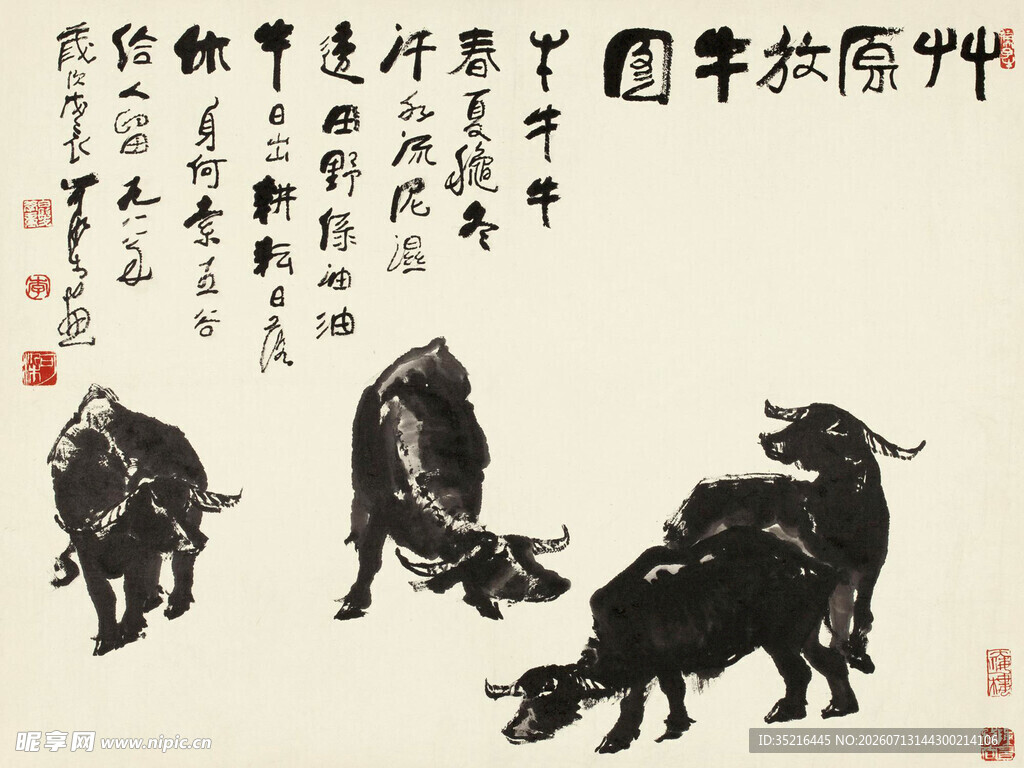 艸原放牛圖
牛牛牛
春夏龝冬
汗水流泥濕
遠田野緑油油
牛日出耕耘日落
休身何索五谷
给人留
歲次戊辰
画
可染
昵享网 www.nipic.cn
ID:35216445 NO:20260713144300214106